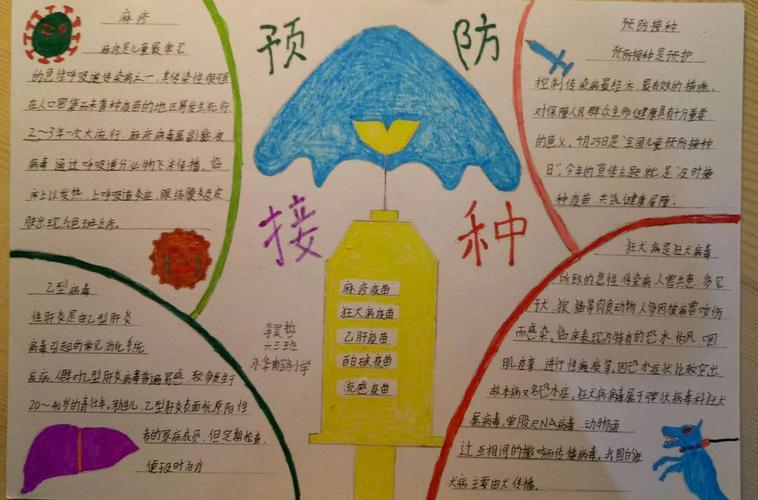 预防
接种
麻疹
麻疹是儿童最常见
的急性呼吸道传染病之一,其传染性很强
在人口密集而未普种疫苗的地区易发生流行
2~3年一次大流行。麻疹病毒属副黏液
病毒通过呼吸道分泌物飞沫传播。临
床上以发热、上呼吸道炎症、眼结膜炎及皮
肤出现红色斑丘疹。
预防接种
预防接种是预护
控制传染病最经济、最有效的措施,
对保障人民群众生命健康具有十分重要
的意义。4月25日是"全国儿童预防接种
日"。今年的宣传主题就是"及时接
种疫苗,共筑健康屏障。
乙型病毒
性肝炎是由乙型肝炎
病毒引起的常见消化系统
疾病。人群对乙型肝炎病毒普遍易感,较多发生于
20~40岁的青壮年。
乙型肝炎表面抗原阳性
者的家病成员,但定期检查,
便及时治疗
麻疹疫苗
狂犬病疫苗
乙肝疫苗
百白破疫苗
流感疫苗
六三班
狂犬病是狂犬病毒
所致的急性传染病,人兽共患,多见
于犬、狼、猫等肉食动物,人多因被病兽咬伤
而感染。临床表现为特有的恐水、怕风、咽
肌痉挛、进行性瘫痪等。因恐水症状比较突出,
故本病又名恐水症。狂犬病病毒属于弹状病毒科狂犬
病毒属,单股RNA病毒,动物通
过互相间的撕咬而传播病毒。我国的狂
犬病主要由犬传播。